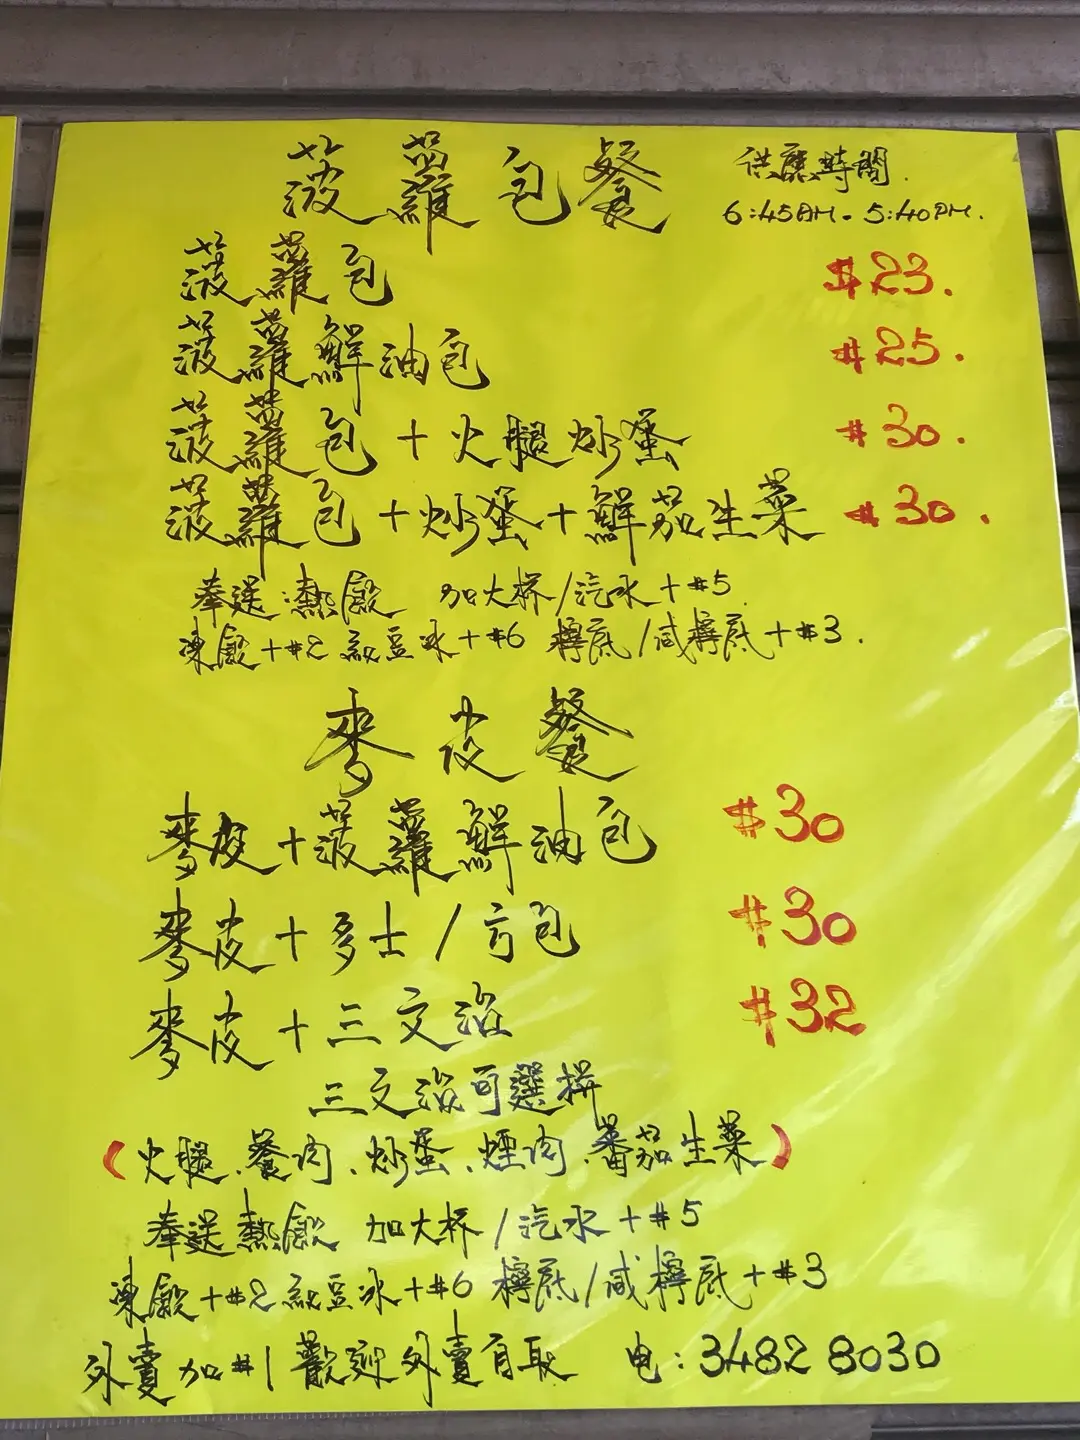 菠蘿包餐
供應時間
6:45AM - 5:40PM.
菠蘿包 $23.
菠蘿鮮油包 $25.
菠蘿包+火腿炒蛋 $30.
菠蘿包+炒蛋+鮮茄生菜 $30.
奉送:熱飲 加大杯/汽水+$5
凍飲+$2 紅豆冰+$6 檸底/咸檸底+$3.
麥皮餐
麥皮+菠蘿鮮油包 $30
麥皮+多士/方包 $30
麥皮+三文治 $32
三文治可選拼
(火腿、餐肉、炒蛋、煙肉、蕃茄生菜)
奉送熱飲 加大杯/汽水+$5
凍飲+$2 紅豆冰+$6 檸底/咸檸底+$3
外賣加$1 歡迎外賣自取 电:3482 8030